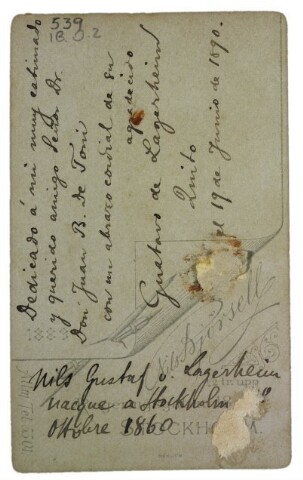 539
IB.O.2
Dedicado á mi muy estimado
y querido amigo Señor Dr.
Don Juan B. De Toni
con un abrazo cordial de su
agradecido
Gustavo de Lagerheim
Quito
el 19 de Junio de 1890.
Nils Björsell
Nils Gustaf v. Lagerheim
nacque a Stockholm
Ottobre 1860
STOCKHOLM.